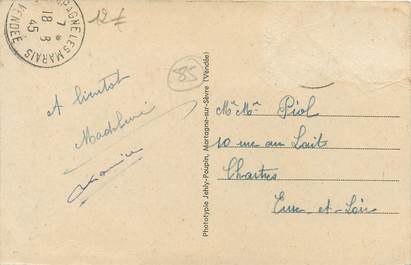 CHAMPAGNÉ LES MARAIS
VENDÉE
7 *
18 - 8
45
12 f
85
A bientot
Madeleine
Maurice
Phototypie Jehly-Poupin, Mortagne-sur-Sèvre (Vendée)
Mr Mme Piol
10 rue au Lait
Chartres
Eure-et-Loir